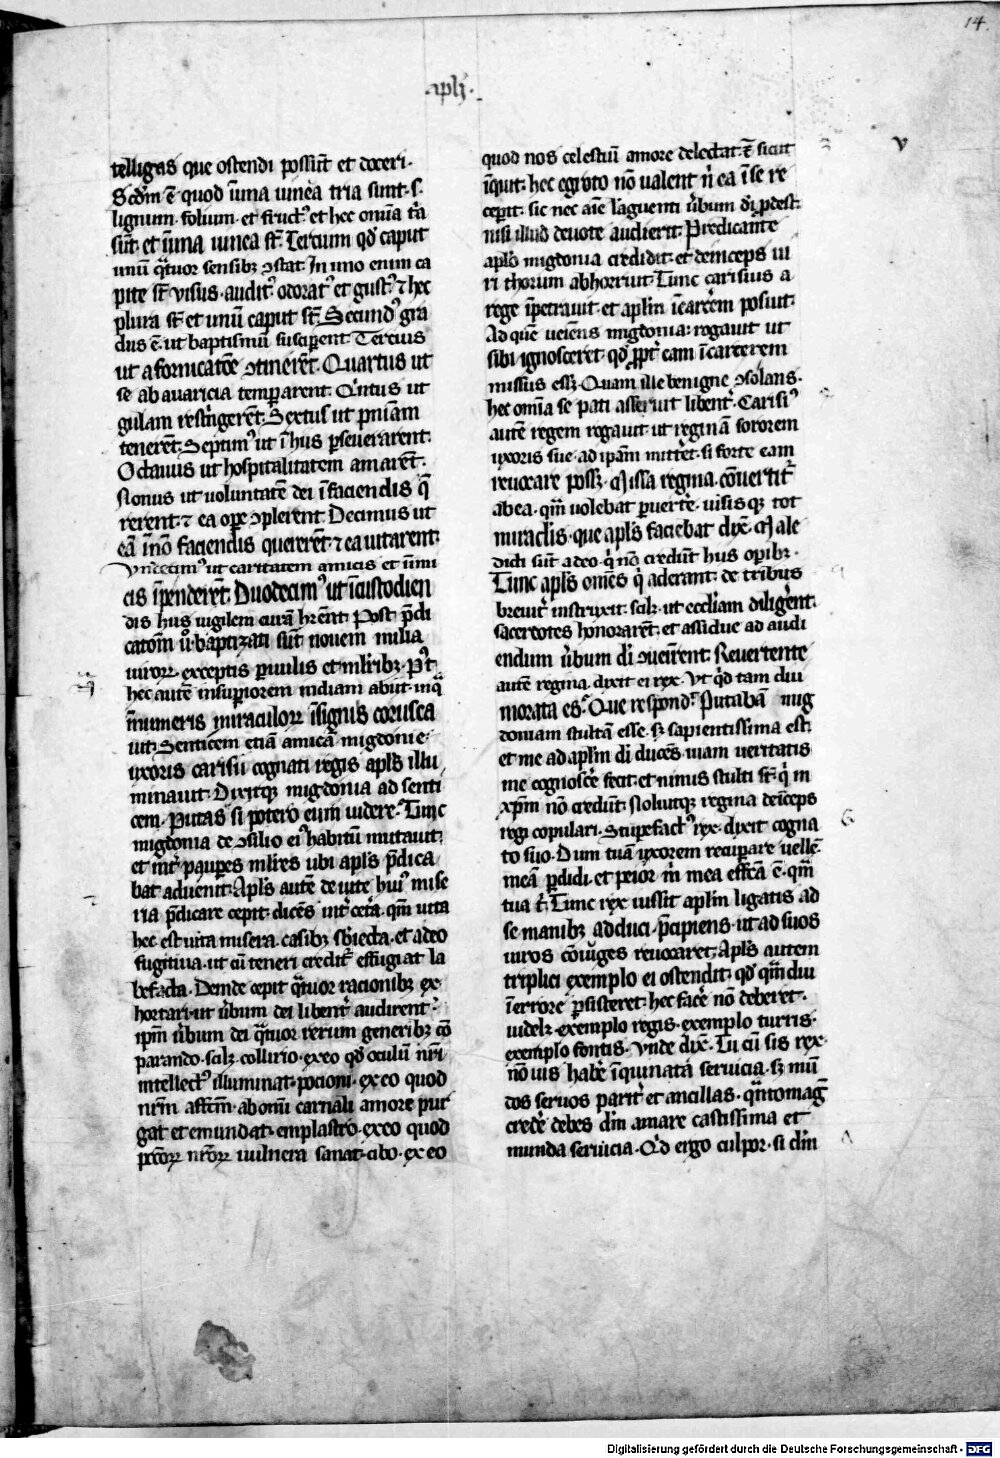 14
apl̄i.
v
telligas que ostendi possūt et doceri.
Scd̄m ē quod ī una vinea tria sunt. s.
lignum. folium. et fruct᷒ et hec omīa tr̄ia
sūt. et ī una vinea st̄. Tercium qd̓ caput
unū q̄tuor sensibꝫ ꝯstat. In uno enim ca
pite st̄ visus. audit᷒ odorat᷒ et gust᷒ ⁊ hec
plura st̄ et unū caput st̄. Secund᷒ gra
dus ē. ut baptismū susciꝑent. Tercius
ut a fornicatōe ꝯtinerēt. Quartus ut
se ab avaricia temꝑarent. Qintus ut
gulam restīgerēt. Sextus ut pn̄iam
tenerēt. Septim᷒ ut ī hiis ꝑseverarent.
Octavus ut hospitalitatem amarēt.
Nonus ut voluntatē dei ī faciendis q̄
rerent. ⁊ ea oꝑe ꝯplerent. Decimus ut
eā ī nō faciendis quererēt. ⁊ ea vitarent.
Undecim᷒ ut caritatem amicis et inimi
cis īpenderēt. Duodecim᷒ ut ī custodien
dis hiis vigilem curā hr̄ent. Post p̄di
catōm v̓o baptizati sūt novem milia
virorꝝ. exceptis parvulis et ml̓ribꝫ. P᷒t
hec autē in superiorem indiam abiit. inq̄
īnumeris miraculorꝝ īsignis corusca
vit. Senticem etiā amicā migdonie
uxoris carisii cognati regis apl̄s illu
minavit. Dixitqꝫ migdonia ad senti
cem. Putas si potero eum videre. Tunc
migdonia de ꝯsilio ei᷒ habitū mutavit.
et int̓ pauꝑes ml̓ies ubi apl̄s p̄dica
bat advenit. Apl̄s autē de vite hui᷒ mise
ria p̄dicare cepit. dicēs int̓ cet̓a. qm̄ vita
hec est vita misera. casibꝫ sb̓iecta. et adeo
fugitiva. ut cū teneri credit᷑ effugiat la
befacta. Deinde cepit q̄tuor racionibꝫ ex
hortari. ut v̓bum dei libent̓ audirent.
ipm̄ v̓bum dei q̄tuor rerum generibꝫ cō
parando. scilꝫ. collirio. ex eo qd̓ oculū nr̄i
intellect᷒ illuminat. pocioni. ex eo quod
nr̄m affcm̄. ab omī carnali amore pur
gat et emundat. emplastro. ex eo quod
pccōrꝝ nr̄orꝝ vulnera sanat. cibo. ex eo
quod nos celestiū amore delectat. Et̄ sicut
īquit. hec egroto nō valent n̓ ea ī se re
ceperit. sic nec aīe languenti v̓bum di̓ ꝓdest.
nisi illud devote audierit. Predicante
aplo̓ migdonia credidit. et deinceps vi
ri thorum abhorruit. Tunc carisius a
rege īpetravit. et aplm̄ ī carcerem posuit.
Ad quē veiens migdonia. rogavit ut
sibi ignosceret. qd̓ ꝓpt̓ eam ī carcerem
missus essꝫ. Quam ille benigne ꝯsolans.
hec omīa se pati asseruit libent̓. Carisi᷒
autē regem rogavit. ut reginā sororem
uxoris sue. ad ipam̄ mitt̓et. si forte eam
revocare possꝫ. Missa regina. cōvertit᷑
ab ea. qm̄ volebat ꝑverte. visisqꝫ tot
miraclis. que apl̄s faciebat dix̄. Male
dicti sūt a deo. q̓ nō credūt hiis opibꝫ.
Tunc apl̄s omēs q̓ aderant. de tribus
brevit̓ instruxit. scilꝫ. ut eccl̓iam diligerent.
sacerdotes honorarēt. et assidue ad audi
endum v̓bum di̓ ꝯveirent. Revertente
autē regina. dixit ei rex. Ut q̓d tam diu
morata es. Que respond̓. Putabā mig
doniam stultā esse. sꝫ sapientissima est.
et me ad aplm̄ di̓ ducēs. viam veritatis
me cognosce̓ fecit. et nimis stulti st̄ q̓ in
xp̄m nō credūt. Noluitqꝫ regina deīceps
regi copulari. Stupefact᷒ rex. dixit cogna
to suo. Dum tuā uxorem recuꝑare vellē.
meā ꝑdidi. et peior m̓ mea effcā ē. qm̄
tua t̓. Tunc rex iussit aplm̄ ligatis ad
se manibꝫ adduci. p̄cipiens. ut ad suos
viros cōiuges revocaret. Apl̄s autem
triplici exemplo ei ostendit. qd̓ qm̄diu
ī errore ꝑsisteret. hec face̓ nō deberet.
videlꝫ. exemplo regis. exemplo turris.
exemplo fontis. Unde dix̄. Tu cū sis rex.
nō vis habe̓ īquinata servicia. sꝫ mū
dos servos parit̓ et ancillas. q̄ntomagꝭ
crede̓ debes dm̄ amare castissima et
munda servicia. Q̓d ergo culpor. si dm̄
Digitalisierung gefördert durch die Deutsche Forschungsgemeinschaft - DFG